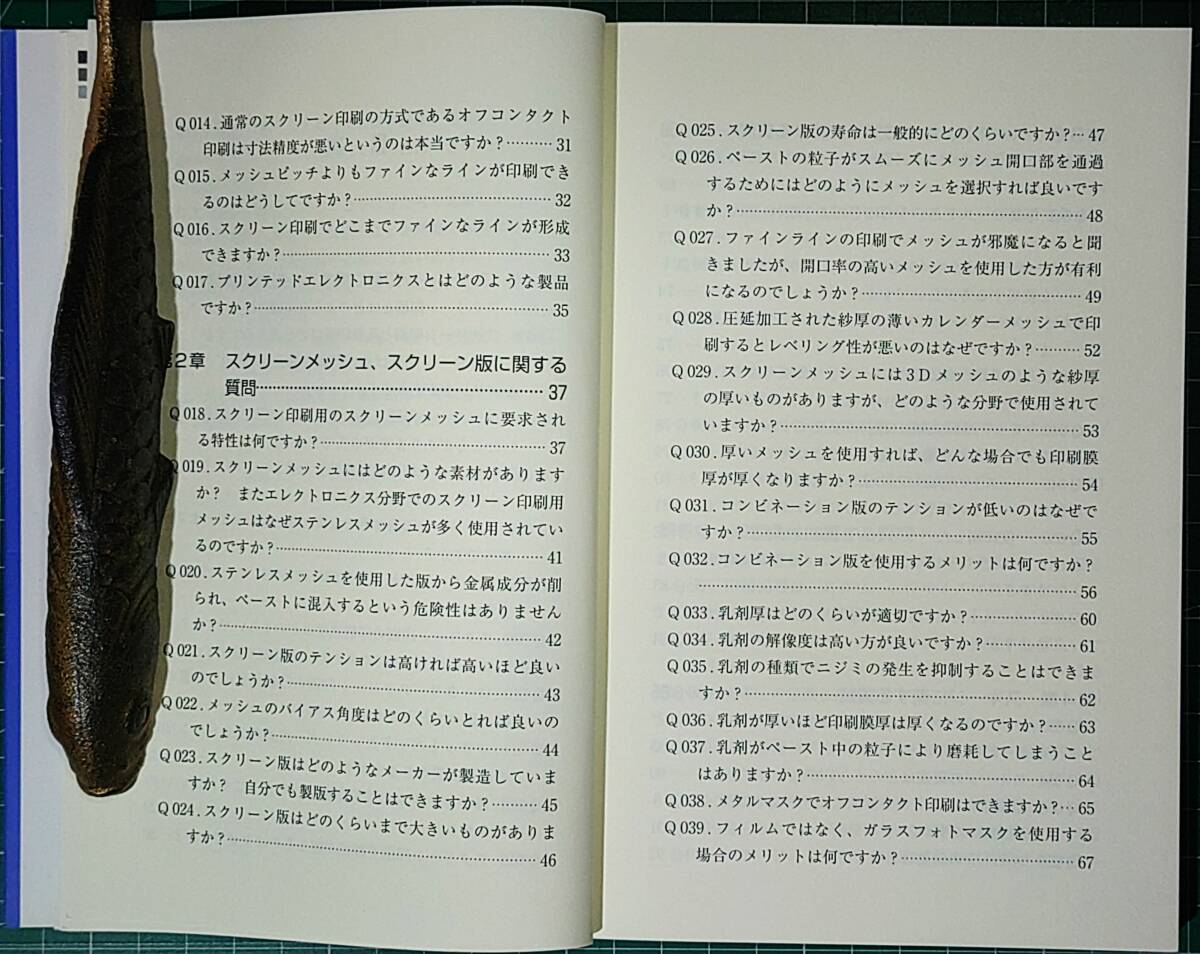 Q014.通常のスクリーン印刷の方式であるオフコンタクト
印刷は寸法精度が悪いというのは本当ですか?………31
Q015.メッシュピッチよりもファインなラインが印刷でき
るのはどうしてですか?………32
Q016.スクリーン印刷でどこまでファインなラインが形成
できますか?………33
Q017.プリンテッドエレクトロニクスとはどのような製品
ですか?………35
2章 スクリーンメッシュ、スクリーン版に関する
質問………37
Q018.スクリーン印刷用のスクリーンメッシュに要求され
る特性は何ですか?………37
Q019.スクリーンメッシュにはどのような素材があります
か? またエレクトロニクス分野でのスクリーン印刷用
メッシュはなぜステンレスメッシュが多く使用されてい
るのですか?………41
Q020.ステンレスメッシュを使用した版から金属成分が削
られ、ペーストに混入するという危険性はありません
か?………42
Q021.スクリーン版のテンションは高ければ高いほど良い
のでしょうか?………43
Q022.メッシュのバイアス角度はどのくらいとれば良いの
でしょうか?………44
Q023.スクリーン版はどのようなメーカーが製造していま
すか? 自分でも製版することはできますか?………45
Q024.スクリーン版はどのくらいまで大きいものがありま
すか?………46
Q025.スクリーン版の寿命は一般的にどのくらいですか?…47
Q026.ペーストの粒子がスムーズにメッシュ開口部を通過
するためにはどのようにメッシュを選択すれば良いです
か?………48
Q027.ファインラインの印刷でメッシュが邪魔になると聞
きましたが、開口率の高いメッシュを使用した方が有利
になるのでしょうか?………49
Q028.圧延加工された紗厚の薄いカレンダーメッシュで印
刷するとレベリング性が悪いのはなぜですか?………52
Q029.スクリーンメッシュには3Dメッシュのような紗厚
の厚いものがありますが、どのような分野で使用されて
いますか?………53
Q030.厚いメッシュを使用すれば、どんな場合でも印刷膜
厚が厚くなりますか?………54
Q031.コンビネーション版のテンションが低いのはなぜで
すか?………55
Q032.コンビネーション版を使用するメリットは何ですか?
………56
Q033.乳剤厚はどのくらいが適切ですか?………60
Q034.乳剤の解像度は高い方が良いですか?………61
Q035.乳剤の種類でニジミの発生を抑制することはできま
すか?………62
Q036.乳剤が厚いほど印刷膜厚は厚くなるのですか?……63
Q037.乳剤がペースト中の粒子により磨耗してしまうこと
はありますか?………64
Q038.メタルマスクでオフコンタクト印刷はできますか?…65
Q039.フィルムではなく、ガラスフォトマスクを使用する
場合のメリットは何ですか?………67